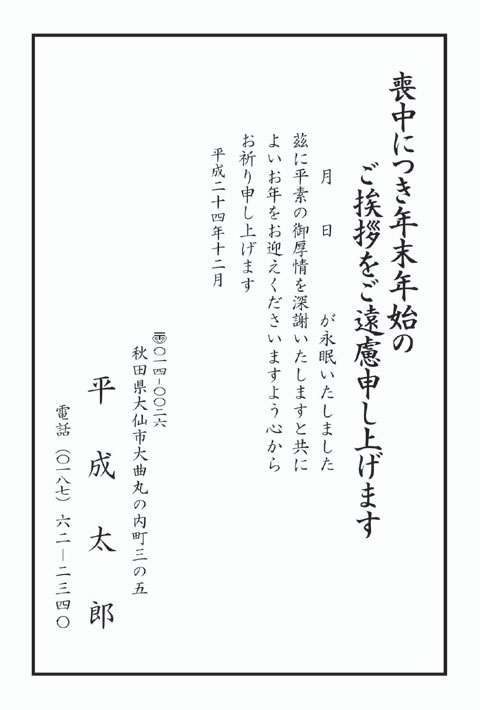 喪中につき年末年始の
ご挨拶をご遠慮申し上げます
月　日　　　が永眠いたしました
茲に平素の御厚情を深謝いたしますと共に
よいお年をお迎えくださいますよう心から
お祈り申し上げます
平成二十四年十二月
〒〇一四―〇〇二六
秋田県大仙市大曲丸の内町三の五
平成太郎
電話（〇一八七）六二―二三四〇